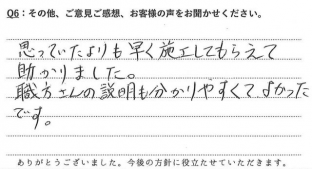 Q6：その他、ご意見ご感想、お客様の声をお聞かせください。
思っていたよりも早く施工してもらえて
助かりました。
職方さんの説明も分かりやすくてよかった
です。
ありがとうございました。今後の方針に役立たせていただきます。